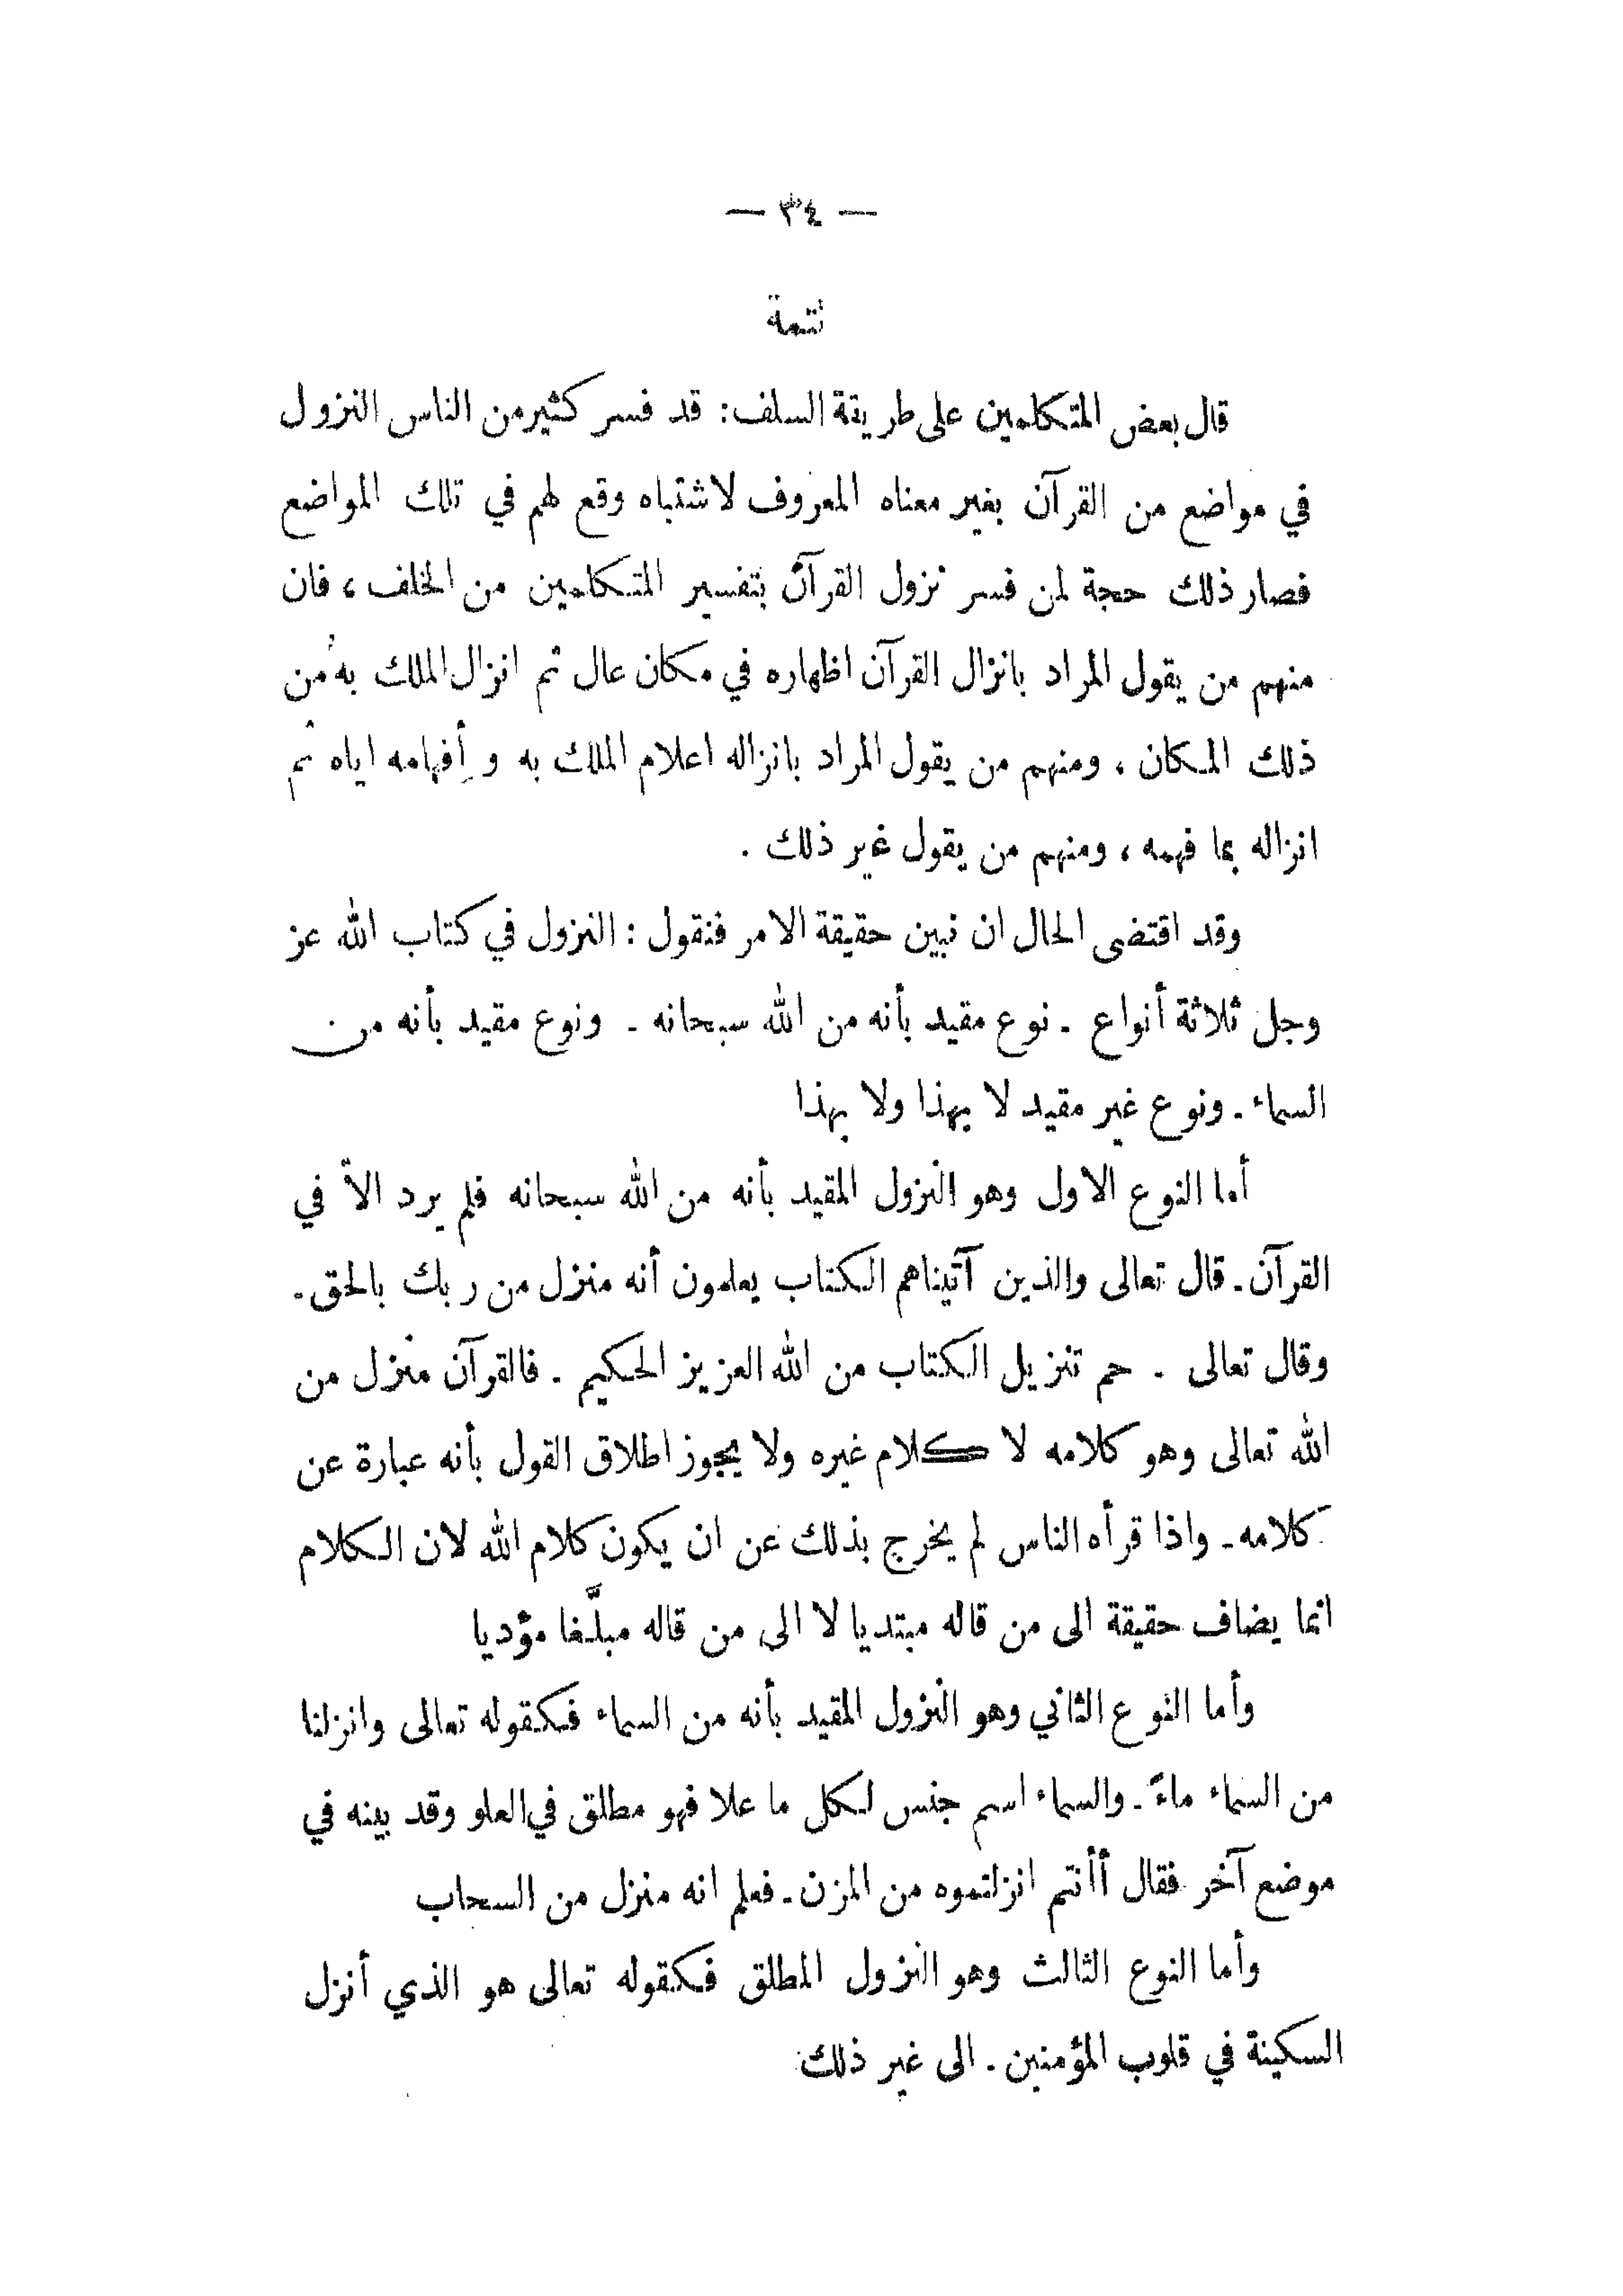 — ٣٤ —
تتمة
قال بعض المتكلمين على طريقة السلف: قد فسر كثير من الناس النزول
في مواضع من القرآن بغير معناه المعروف لاشتباه وقع لهم في تلك المواضع
فصار ذلك حجة لمن فسر نزول القرآن بتفسير المتكلمين من الخلف ، فان
منهم من يقول المراد بانزال القرآن اظهاره في مكان عال ثم انزال الملك به من
ذلك المكان ، ومنهم من يقول المراد بانزاله اعلام الملك به وإفهامه اياه ثم
انزاله بما فهمه ، ومنهم من يقول غير ذلك .
وقد اقتضى الحال ان نبين حقيقة الامر فنقول : النزول في كتاب الله عز
وجل ثلاثة أنواع ـ نوع مقيد بأنه من الله سبحانه ـ ونوع مقيد بأنه من
السماء ـ ونوع غير مقيد لا بهذا ولا بهذا
أما النوع الاول وهو النزول المقيد بأنه من الله سبحانه فلم يرد الاّ في
القرآن ـ قال تعالى والذين آتيناهم الكتاب يعلمون أنه منزل من ربك بالحق ـ
وقال تعالى ـ حم تنزيل الكتاب من الله العزيز الحكيم ـ فالقرآن منزل من
الله تعالى وهو كلامه لا كلام غيره ولا يجوز اطلاق القول بأنه عبارة عن
كلامه ـ واذا قرأه الناس لم يخرج بذلك عن ان يكون كلام الله لان الكلام
انما يضاف حقيقة الى من قاله مبتديا لا الى من قاله مبلّغا مؤديا
وأما النوع الثاني وهو النزول المقيد بأنه من السماء فكقوله تعالى وانزلنا
من السماء ماءً ـ والسماء اسم جنس لكل ما علا فهو مطلق في العلو وقد بينه في
موضع آخر فقال أأنتم انزلتموه من المزن ـ فعلم انه منزل من السحاب
وأما النوع الثالث وهو النزول المطلق فكقوله تعالى هو الذي أنزل
السكينة في قلوب المؤمنين ـ الى غير ذلك